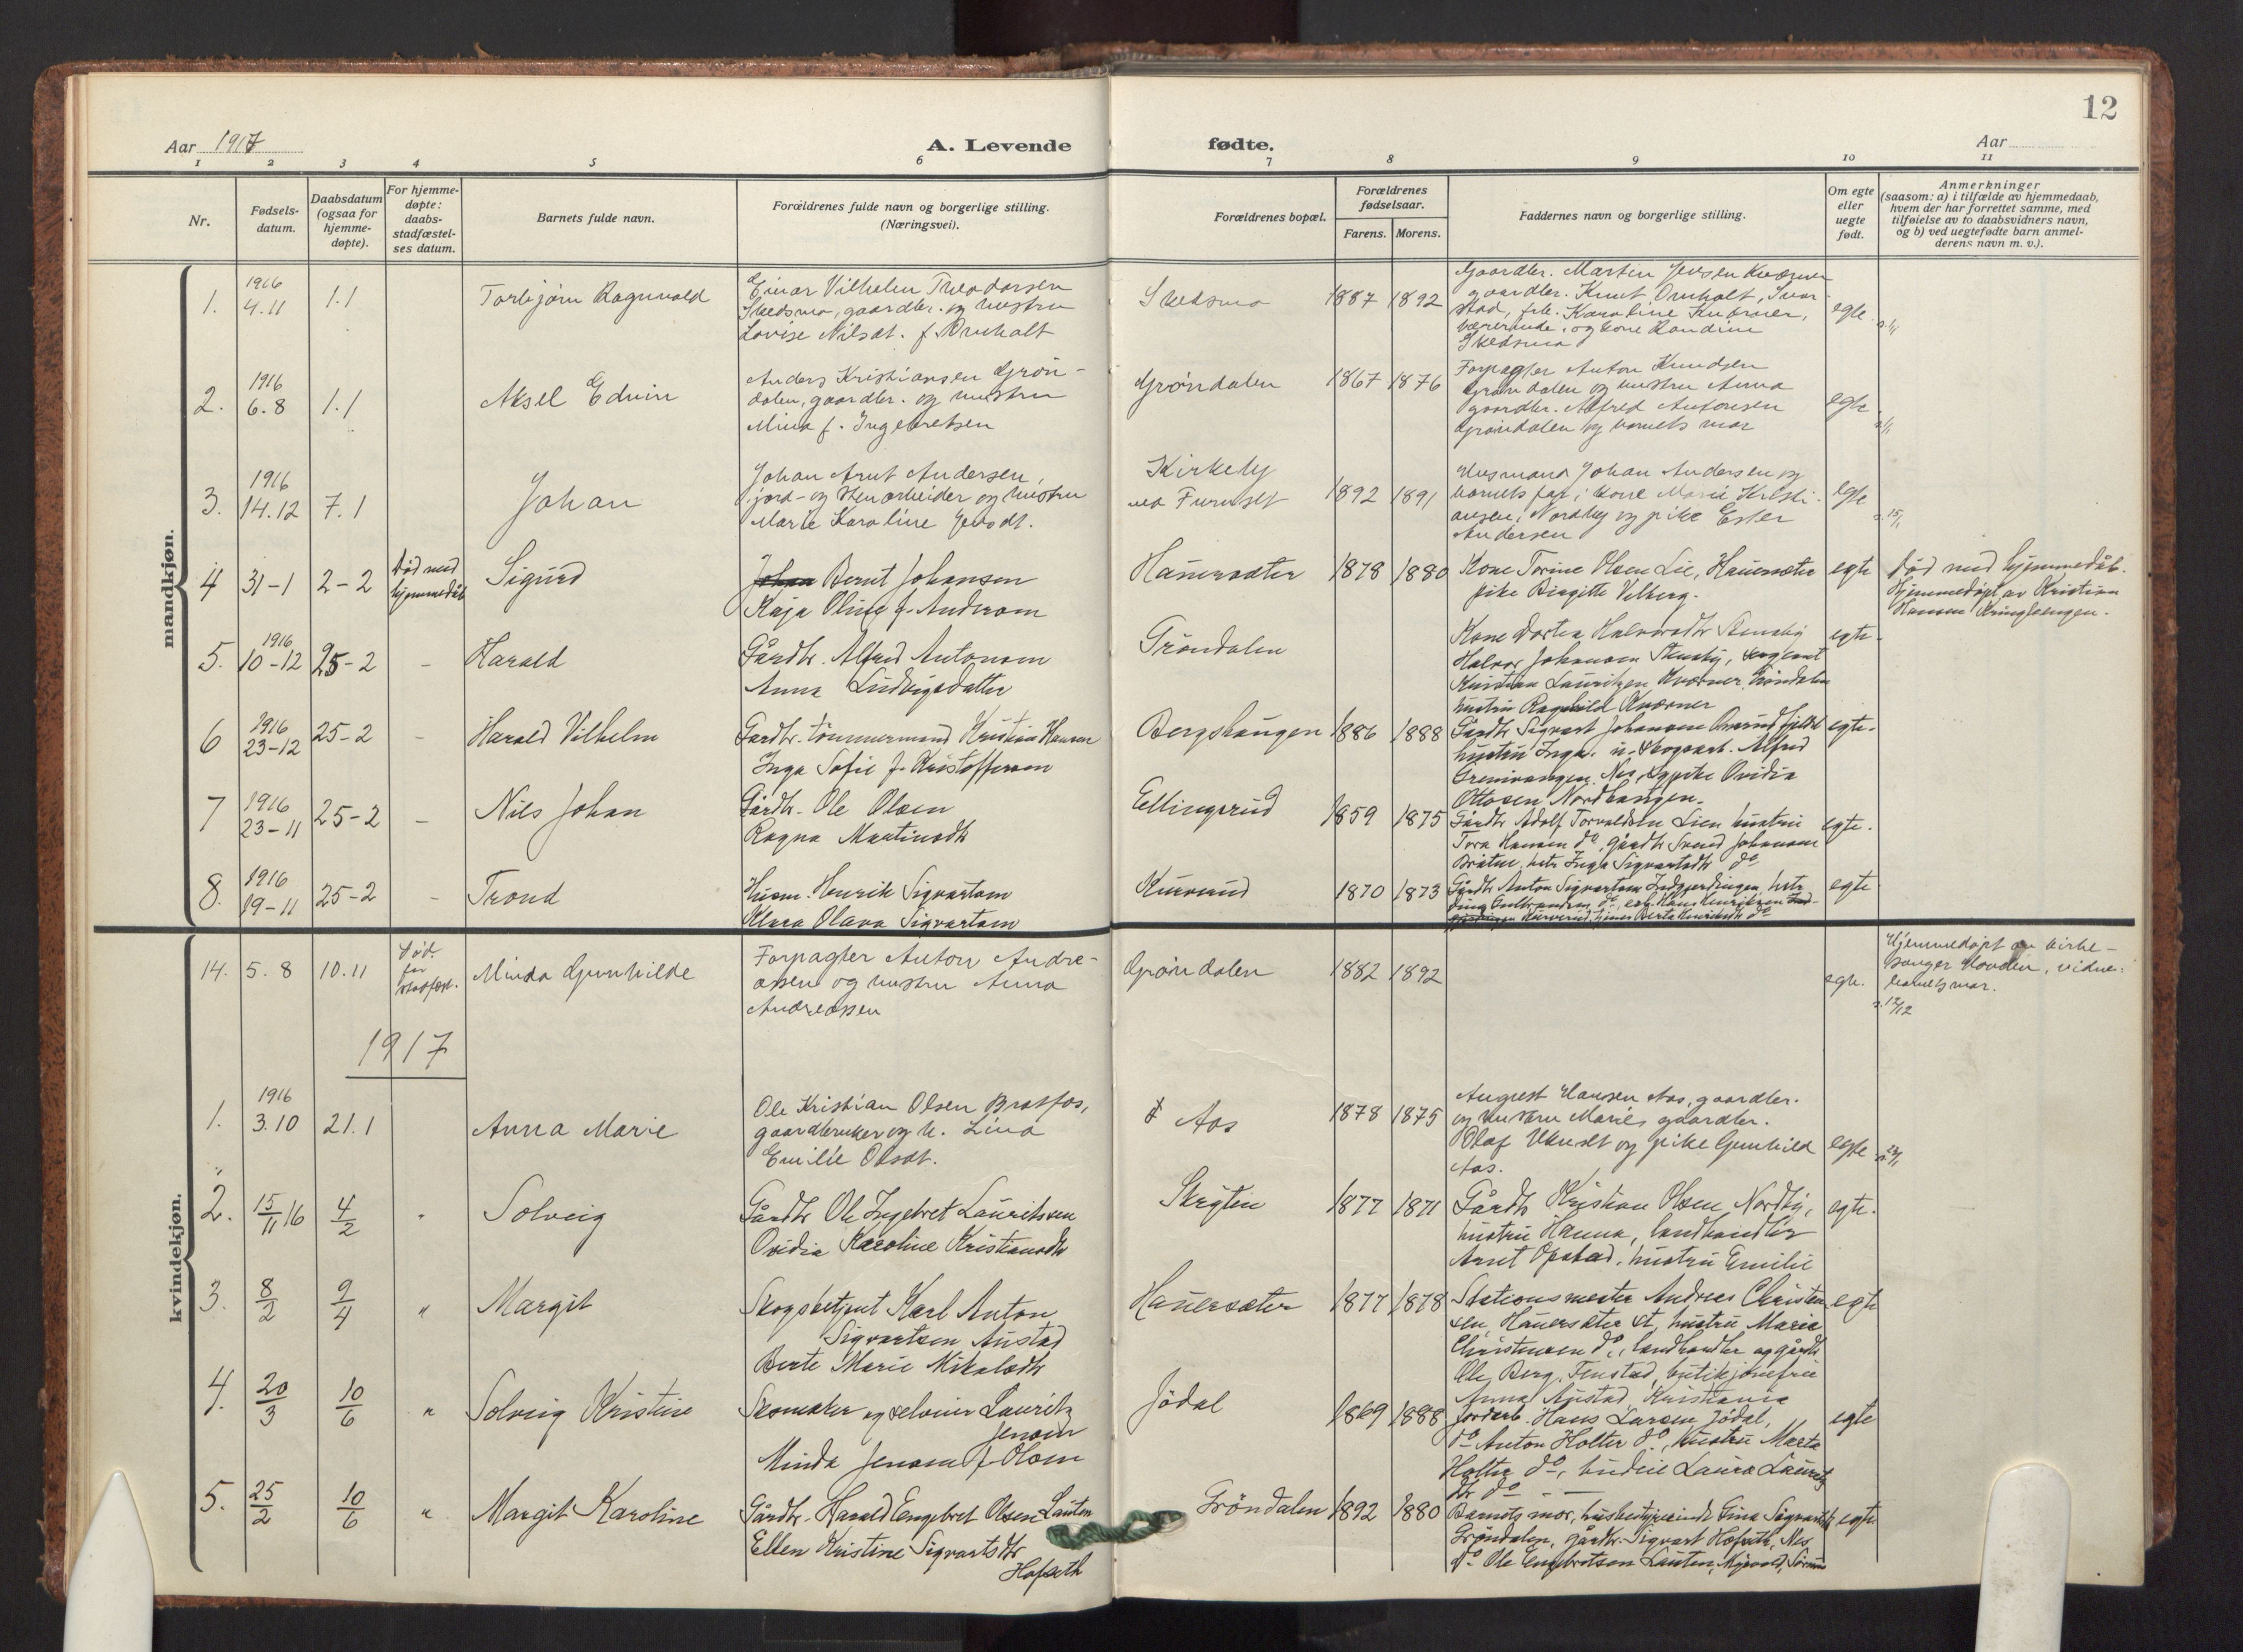 12
Aar 1917
A. Levende fødte.
Aar
1 2 3 4 5 6 7 8 9 10 11
Nr.
Fødsels-
datum.
Daabsdatum
(ogsaa for
hjemme-
døpte).
For hjemme-
døpte:
daabs-
stadfæstel-
ses datum.
Barnets fulde navn.
Forældrenes fulde navn og borgerlige stilling.
(Næringsvei).
Forældrenes bopæl.
Forældrenes
fødselsaar.
Farens. Morens.
Faddernes navn og borgerlige stilling.
Om egte
eller
uegte
født.
Anmerkninger
(saasom: a) i tilfælde av hjemmedaab,
hvem der har forrettet samme, med
tilføielse av to daabsvidners navn,
og b) ved uegtefødte barn anmel-
derens navn m. v.).
mandkjøn.
1. 1916
4.11 1.1
Torbjørn Ragnvald
Einar Vilhelm Theodorsen
Skedsmo, gaardbr. og hustru
Lovise Nilsdt. f. Omholt
Skedsmo 1887 1892
Gaardbr. Martin Jensen Kværner
gaardbr. Knut Omholt,
Karoline Kværner,
og kone Randine
Skedsmo
egte
2. 1916
6.8 1.1
Aksel Edvin
Anders Kristiansen Grøn-
dalen, gaardbr. og hustru
Mina f. Ingebretsen
Grøndalen 1867 1876
Forpagter Anton Knudsen
Grøndalen og hustru Anna
gaardbr. Alfred Antonsen
Grøndalen og barnets mor
egte
3. 1916
14.12 7.1
Johan
Johan Arnt Andersen,
jord- og stenarbeider og hustru
Marie Karoline
Kirkeby
ved Furuset 1892 1891
Husmand Johan Andersen og
barnets far; kone Marie Kristi-
ansen, Nordby og pike Ester
Andersen
egte
4 31-1 2-2
Død med
hjemmedåb
Sigurd
Johan Bernt Johansen
Kaja Oline f. Andersen
Hauersæter 1878 1880
Kone Torine Olsen Lie, Hauersæter
pike Birgitte Vilberg.
egte
Død med hjemmedåb.
Hjemmedøpt av Kristian
Hansen Kringlerengen.
5. 1916
10-12 25-2 -
Harald
Gårdbr. Alfred Antonsen
Anna Ludvigsdatter
Grøndalen
Kone Dortea Halvorsdtr Stensby
Halvor Johansen Stensby, sergeant
Kristian Lauritzen Kværner, Grøndalen
hustru Ragnhild Kværner
egte
6 1916
23-12 25-2 -
Harald Vilhelm
Gardbr. tømmermand Kristian Hansen
Inga Sofie f. Kristoffersen
Bergshaugen 1886 1888
Gårdbr Sigvart Johansen
hustru Inga. Alfred
Nes, Ovidia
Ottosen Nordhaugen.
egte.
7 1916
23-11 25-2 -
Nils Johan
Gårdbr. Ole Olsen
Ragna Martinsdtr
Ellingsrud 1859 1875
Gårdbr Adolf Torvaldsen Lien hustru
Tora Hansen do, gårdbr Svend Johansen
Bråten, hstr Inga Sigvartsdtr do
egte.
8. 1916
19-11 25-2 -
Trond
Husm. Henrik Sigvartsen
Klara Olava Sigvartsen
Kurverud 1870 1873
Gårdbr Anton Sigvartsen Indgjerdingen, hstr
Hans Henriksen
Kurverud, Berta Henriksdtr do
egte
kvindekjøn.
14. 5.8 10.11
Død
før
stadfæst.
Minda Gunhilde
Forpagter Anton Andre-
asen og hustru Anna
Andreasen
Grøndalen 1882 1892
egte.
Hjemmedøpt av kirke-
sanger Hovden, vidne:
barnets mor.
12/12
1917
1. 1916
3.10 21.1
Anna Marie
Ole Kristian Olsen Bratfos,
gaardbruker og h. Lina
Emilie Olsdt.
Aas 1878 1875
August Hansen Aas, gaardbr.
og hustru Marie, gaardbr.
Olaf og pike Gunhild
Aas.
egte
2. 15/11 16 4/2 "
Solveig
Gårdbr Ole Ingebret Lauritsen
Ovidia Karoline Kristiansdtr
Skrytin 1877 1871
Gårdbr Kristian Olsen Nordby,
hustru Hanna, landhandler
Arnt Opstad, hustru Emilie
egte.
3. 8/2 9/4 "
Margit
Skogsbetjent Karl Anton
Sigvartsen Austad
Berte Marie Mikalsdtr
Hauersæter 1877 1878
Stationsmester Andreas Christen-
sen, Hauersæter st, hustru Maria
Christensen do, landhandler og gårdb.
Ole Berg, Fenstad, butikjomfru
Anna Austad, Kristiania
egte
4. 20/3 10/6 "
Solveig Kristine
Skomaker og selveier Lauritz
Jensen
Minda Jensen f. Olsen
Jødal 1869 1888
Jordarb. Hans Larsen Jødal,
do Anton Holter do, hustru Marta
Holter do, budeie Laura Lauritz-
dtr do
egte
5. 25/2 10/6 "
Margit Karoline
Gårdbr. Harald Engebret Olsen Lauten
Ellen Kristine Sigvartsdtr
Hofseth
Grøndalen 1892 1880
Barnets mor, husbestyrerinde Gina Sigvartsdtr
Grøndalen, gårdbr. Sigvart Hofseth, Nes
do Ole Engebretsen Lauten, Sørum
egte